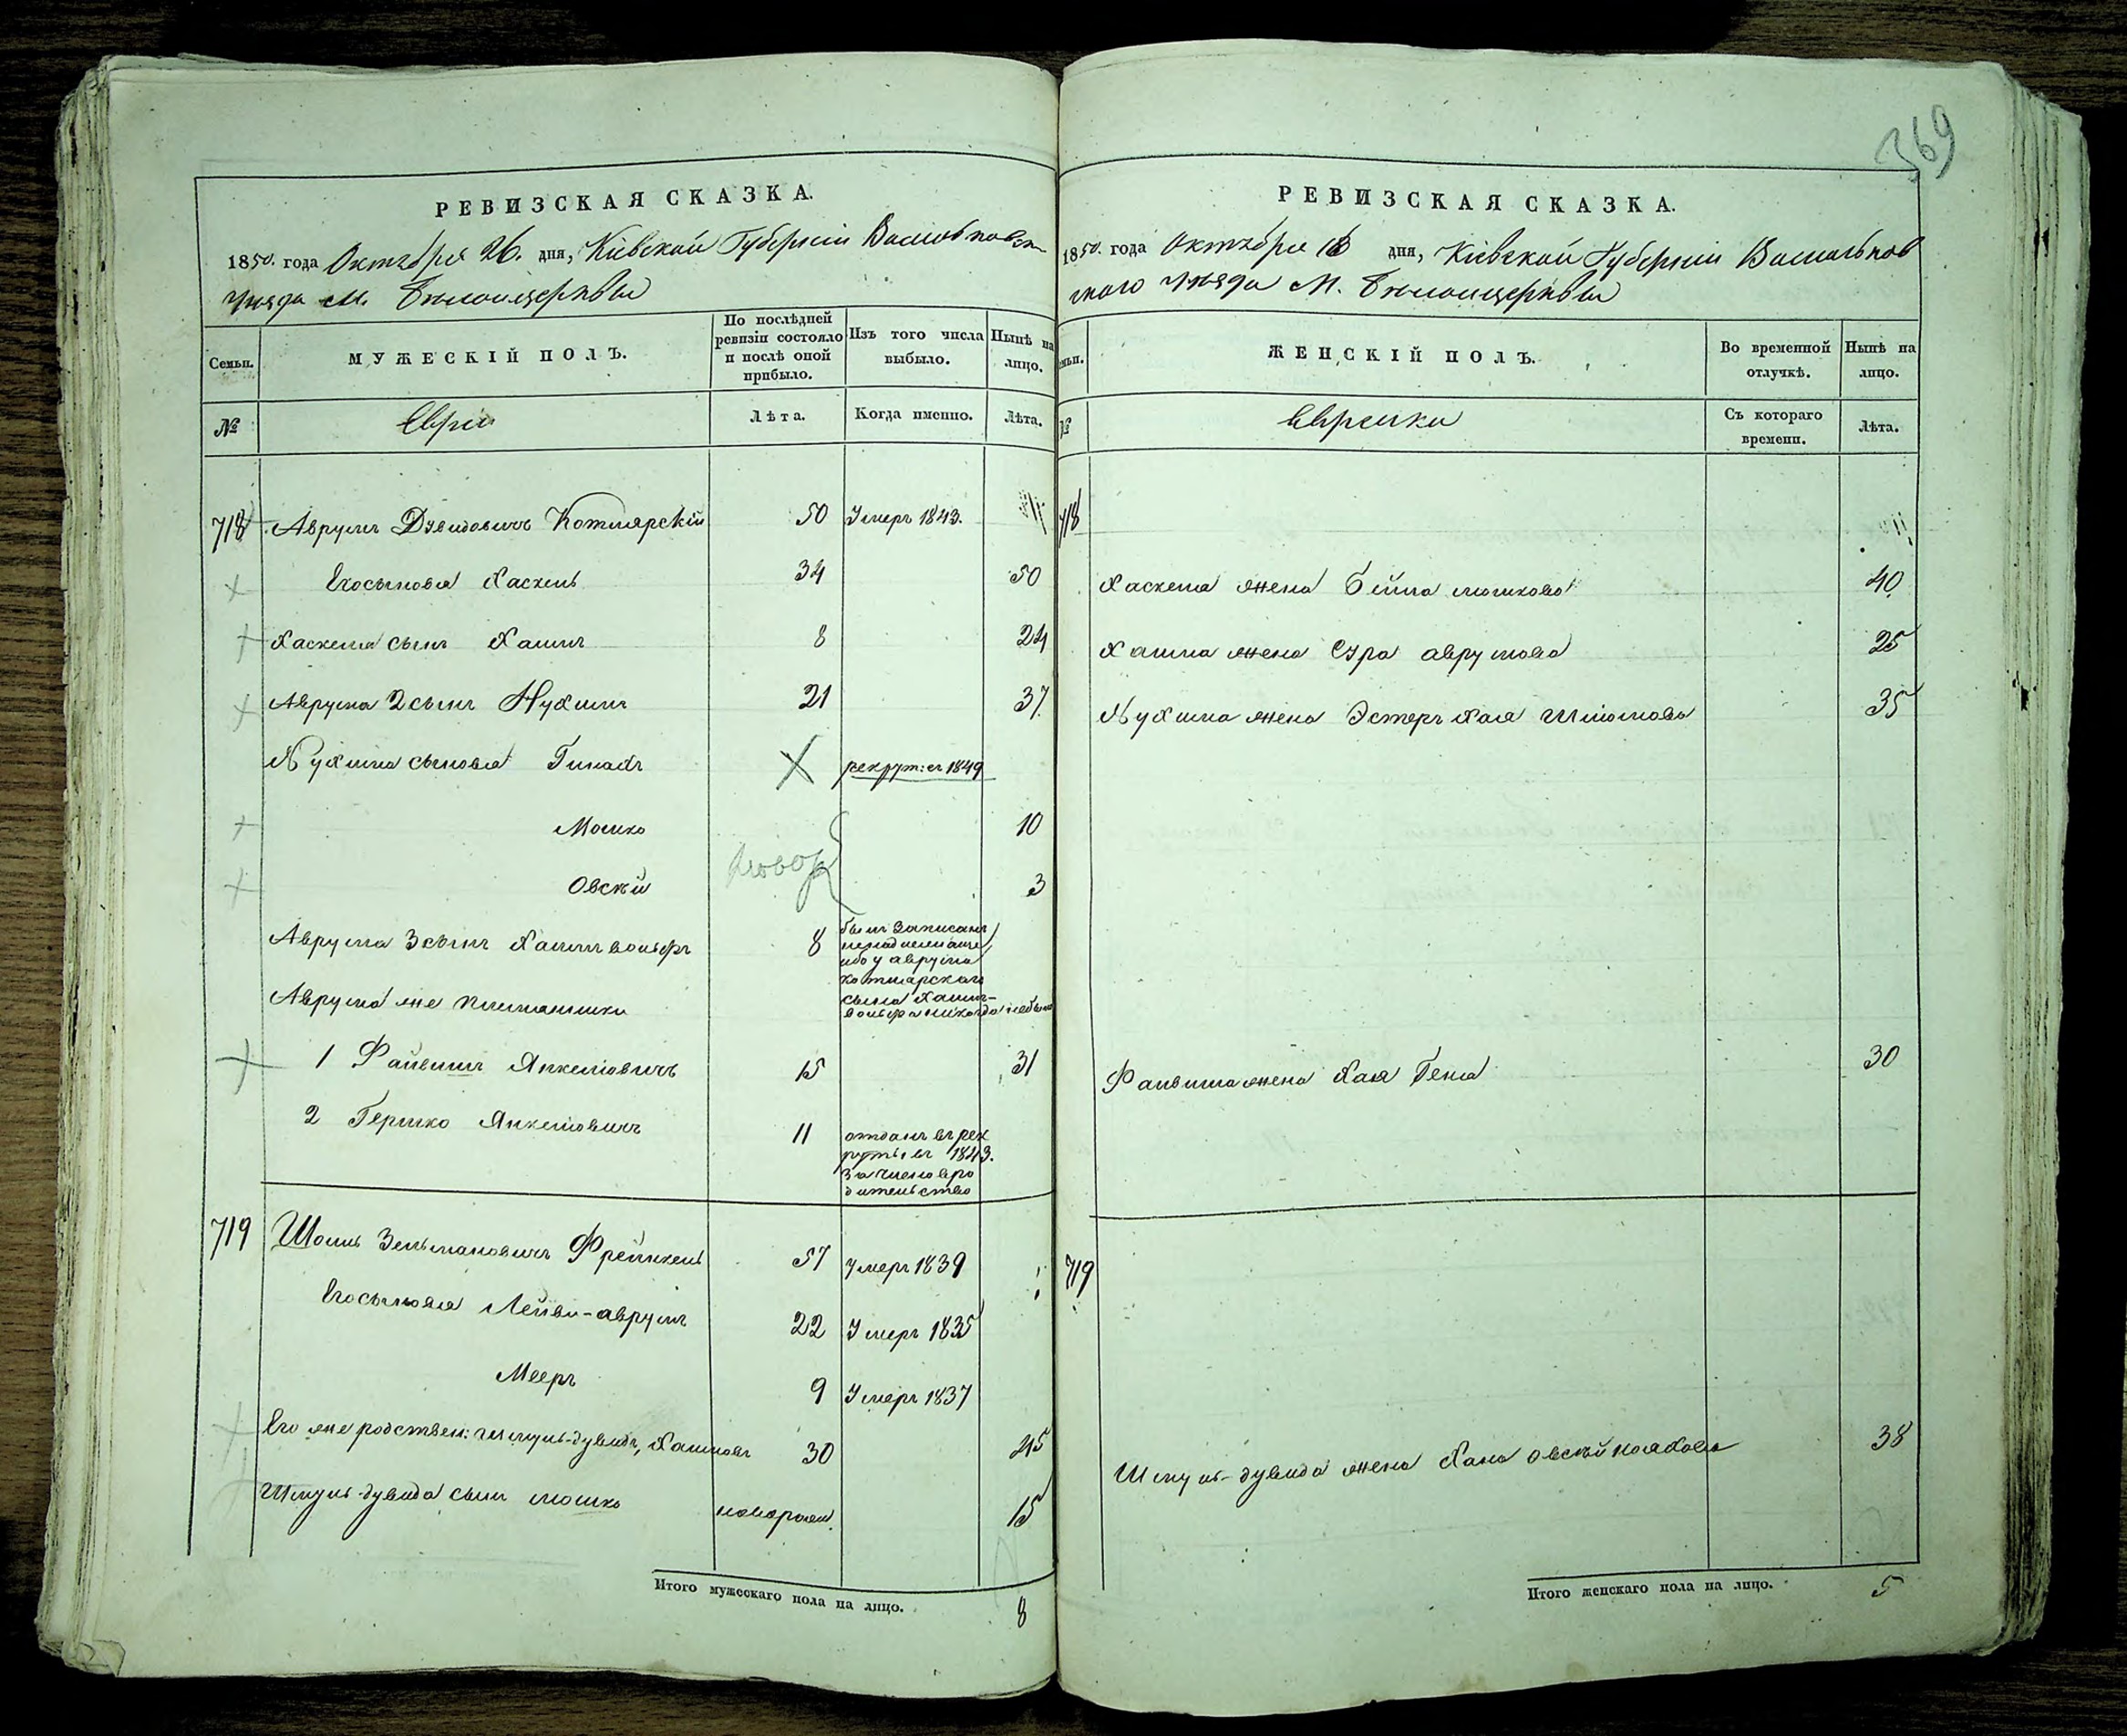 369
РЕВИЗСКАЯ СКАЗКА.
1850. года Октября 26. дня, Кіевской Губерніи Васильковск
Уѣзда М. Бѣлоицерквы
Семьи.
МУЖЕСКІЙ ПОЛЪ.
По послѣдней ревизіи состояло и послѣ оной прибыло.
Изъ того числа выбыло.
Нынѣ на лицо.
№
Евреи
Лѣта.
Когда именно.
Лѣта.
718 Аврумъ Дувидовичъ Котлярскій 50 Умеръ 1843.
Его сыновья Хаскель 34 50
Хаскеля сынъ Хаимъ 8 24
Аврума 2 сынъ Нухимъ 21 37
Нухима сыновья рекрут: въ 1849
Мошко 10
Овсѣй 3
Аврума 3 сынъ Хаимъ вольфъ 8 былъ записанъ
ибо у аврума
котлярскаго
сына Хаимъ-
вольфа никогда небыло
Аврума же племянники
1 Файвишъ Янкелювичъ 15 31
2 Гершко Янкелювичъ 11 отданъ въ рек
руты въ 1843.
719 Шоль Зельмановичъ Френкель 57 Умеръ 1839
Его сыновья Лейви-аврумъ 22 Умеръ 1835
Мееръ 9 Умеръ 1837
Его же родствен: Шмуль-дувидъ, Хаимовъ 30 45
Шмуль-дувида сынъ мошко новорожд. 15
Итого мужескаго пола на лицо. 8
РЕВИЗСКАЯ СКАЗКА.
1850. года Октября дня, Кіевской Губерніи Васильков
скаго Уѣзда М. Бѣлоицерквы
Семьи.
ЖЕНСКІЙ ПОЛЪ.
Во временной отлучкѣ.
Нынѣ на лицо.
№
Еврейки
Съ котораго времени.
Лѣта.
718
Хаскеля жена Бейла мошкова 40
Хаима жена Сура аврумова 25
Нухима жена Эстеръ Хая Шліомова 35
Файвиша жена Хая Гена 30
719
Шмуль-дувида жена Хана 38
Итого женскаго пола на лицо. 5